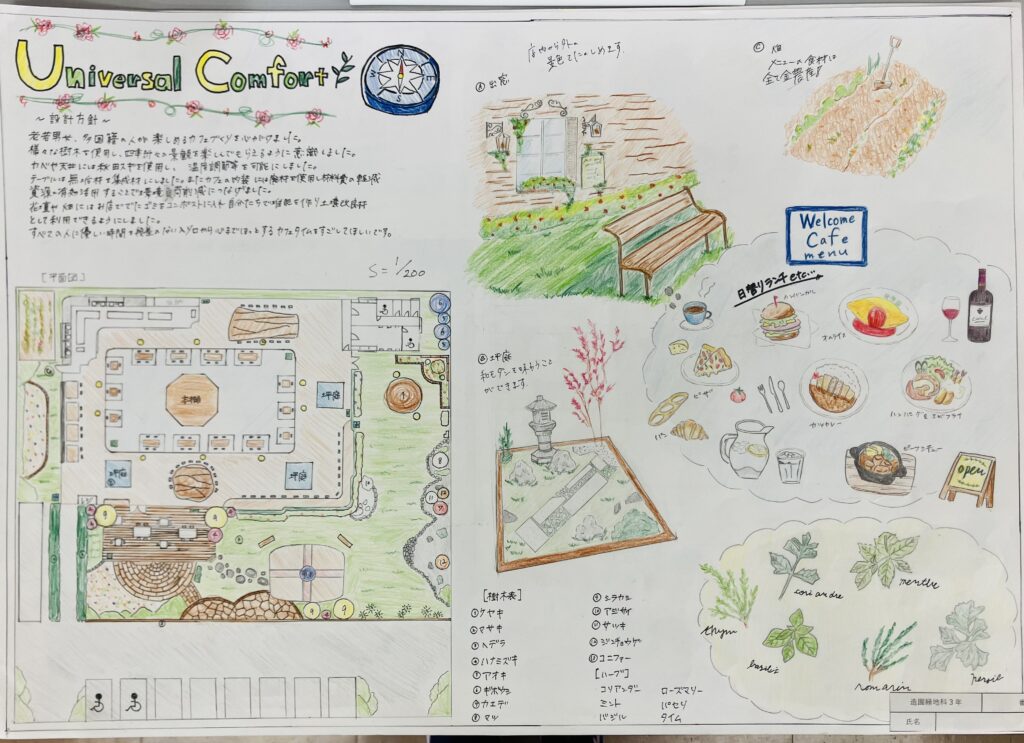 Universal Comfort
N
E
S
W
～設計方針～
老若男女、多国籍の人が楽しめるカフェづくりを心がけました。
様々な樹木を使用し、四季折々の景観を楽しんでもらえるように意識しました。
かべや天井には秋田スギを使用し、温度調節等を可能にしました。
テーブルは無垢材を集成材にしました。またカフェの内装には廃材を使用し材料費の軽減
資源の有効活用することで環境負荷削減につなげました。
花壇や畑にはお店ででたゴミをコンポストに入れ自分たちで堆肥を作り土壌改良材
として利用できるようにしました。
すべての人に優しい時間を段差のない入り口から心までほっとするカフェタイムをすごしてほしいです。
[平面図]
S=1/200
本棚
坪庭
坪庭
坪庭
店内から外の
景色をたのしめます。
Ⓐ出窓
Ⓒ畑
メニューの食材は
全て金農産!!
Welcome
Cafe
menu
日替りランチetc...
ハンバーガー
オムライス
ピザ
パン
カツカレー
ハンバーグ&エビフライ
ビーフシチュー
open
坪庭
和モダンを味わうこと
ができます。
[樹木表]
①ケヤキ
②マサキ
③ヘデラ
④ハナミズキ
⑤アオキ
⑥ギボウシ
⑦カエデ
⑧マツ
⑨シラカシ
⑩アジサイ
⑪サツキ
⑫ジンチョウゲ
⑬コニファー
[ハーブ]
コリアンダー ローズマリー
ミント パセリ
バジル タイム
thym
coriandre
menthe
basilic
romarin
persil
造園緑地科3年
番
氏名